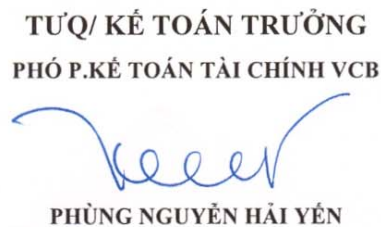 TƯQ/ KẾ TOÁN TRƯỞNG
PHÓ P.KẾ TOÁN TÀI CHÍNH VCB
PHÙNG NGUYỄN HẢI YẾN